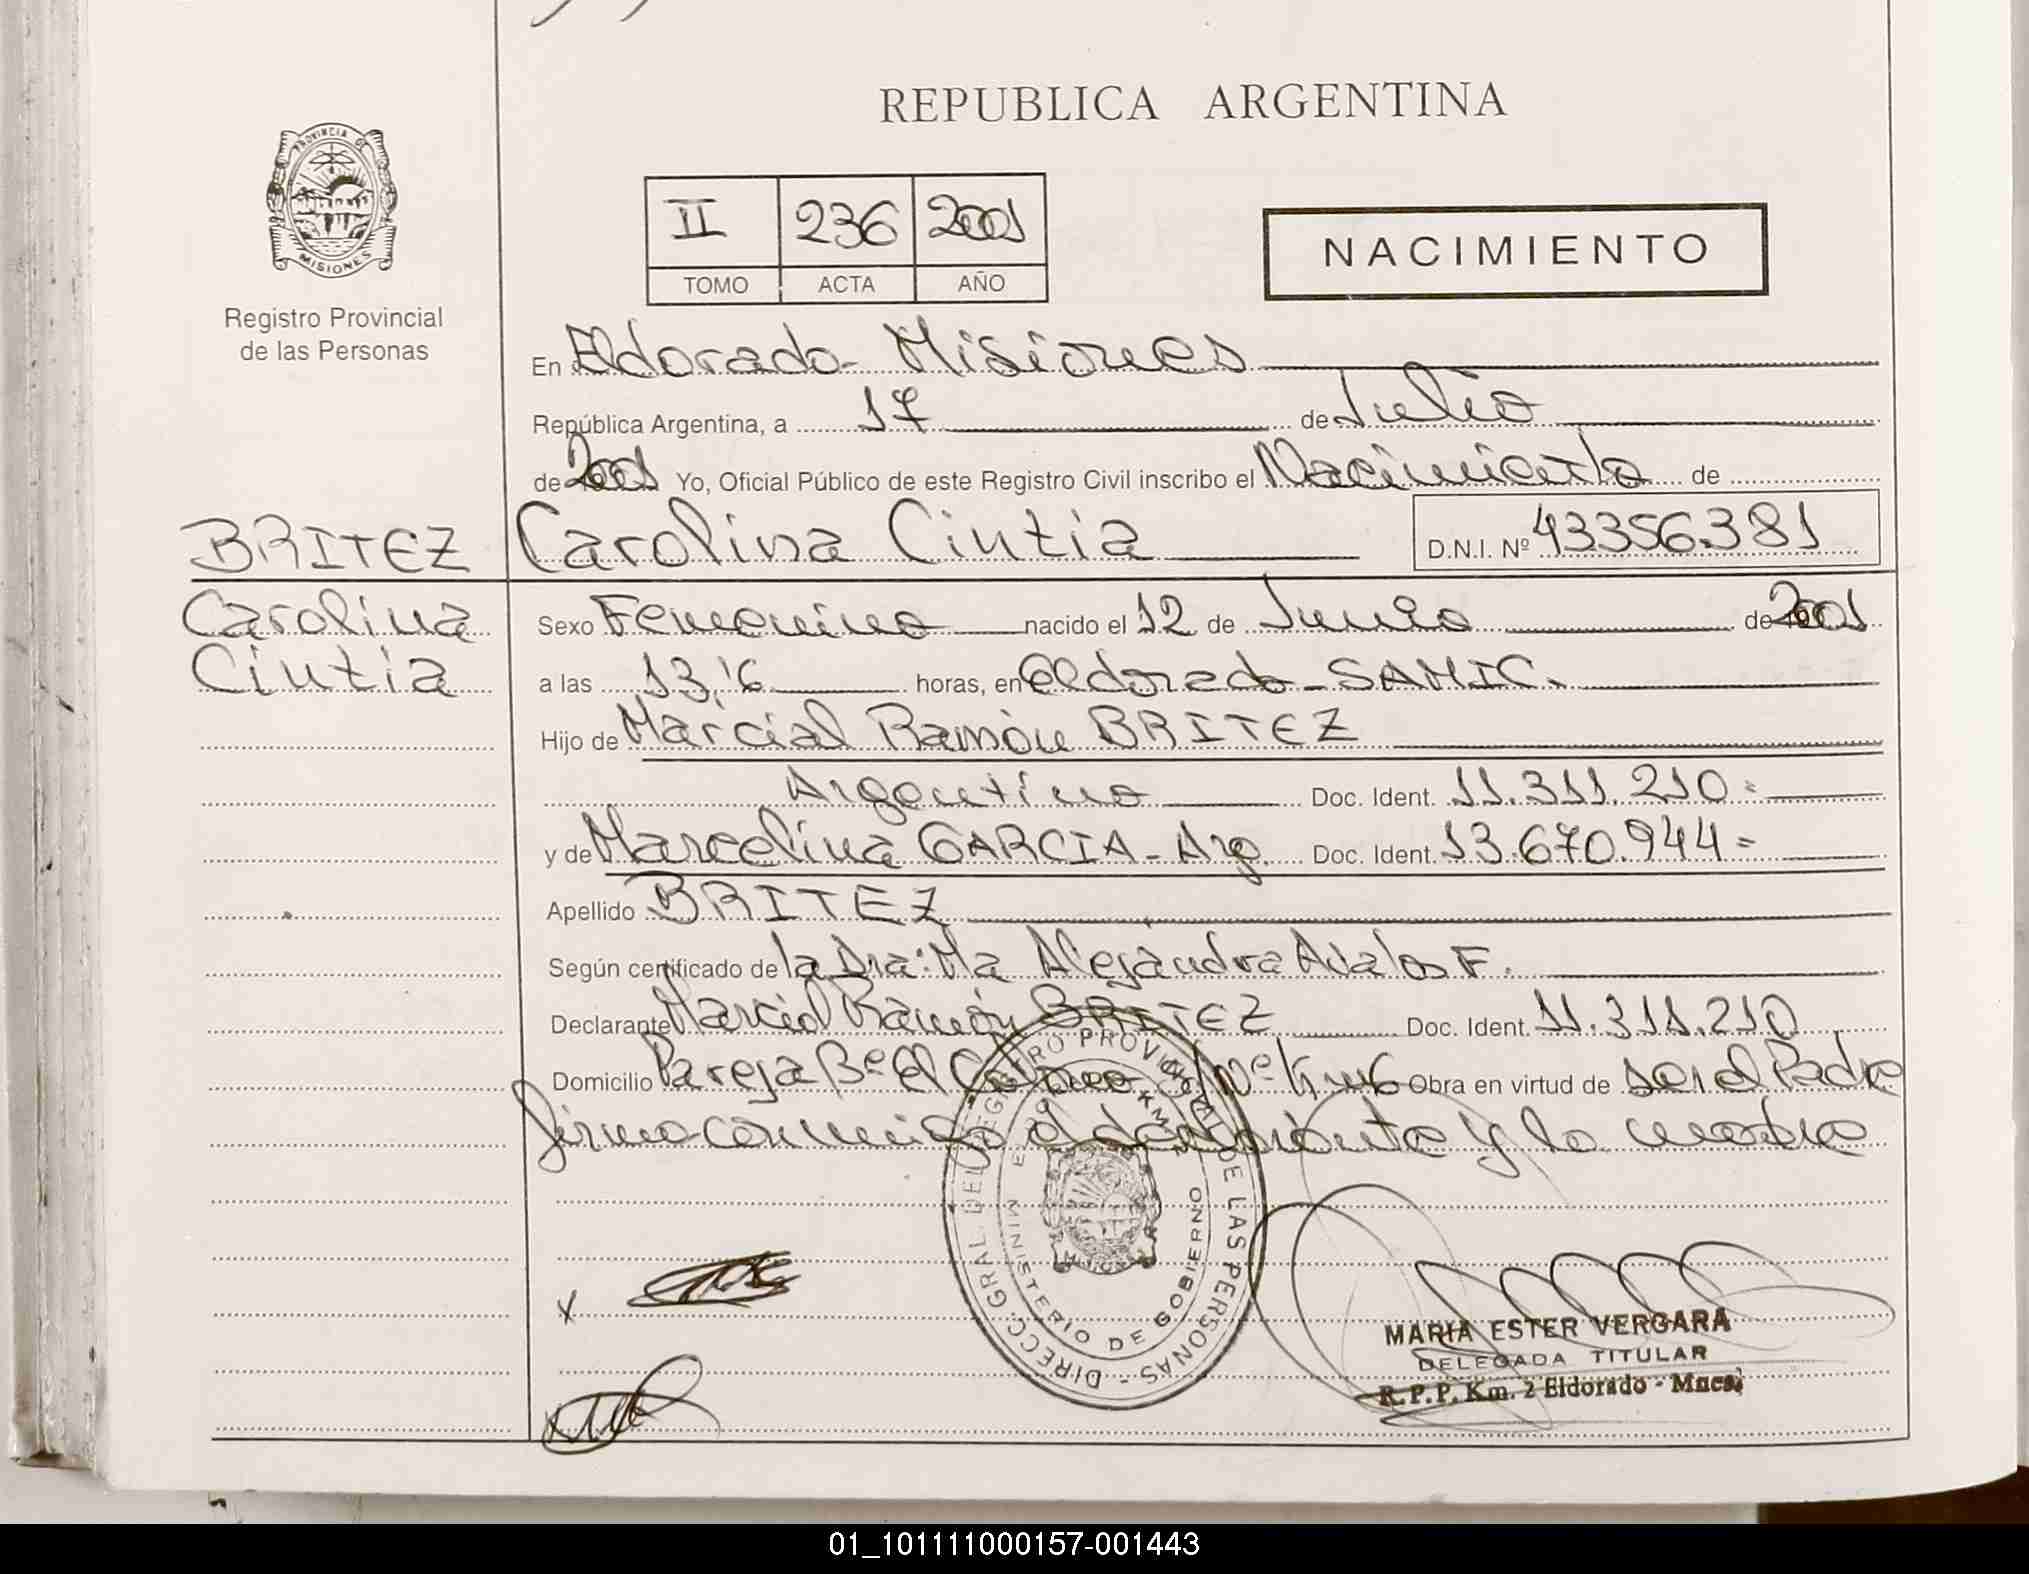 REPUBLICA ARGENTINA
PROVINCIA DE
MISIONES
Registro Provincial
de las Personas
II 236 2001
TOMO ACTA AÑO
NACIMIENTO
En Eldorado - Misiones
República Argentina, a 17 de Julio
de 2001 Yo, Oficial Público de este Registro Civil inscribo el Nacimiento de
BRITEZ Carolina Cintia D.N.I. Nº 43356.381
Carolina Sexo Femenino nacido el 12 de Junio de 2001
Cintia a las 13,16 horas, en Eldorado - SAMIC.
Hijo de Marcial Ramón BRITEZ
Argentino Doc. Ident. 11.311.210=
y de Marcelina GARCIA - Arg. Doc. Ident. 13.670.944=
Apellido BRITEZ
Según certificado de la Dra: Ma Alejandra Avalos F.
Declarante Marcial Ramón BRITEZ Doc. Ident. 11.311.210
Domicilio Pareja Bº El Obra en virtud de ser el Padre
firma conmigo el declarante y la madre
DIRECC. GRAL. DEL REGISTRO PROVINCIAL DE LAS PERSONAS -
MINISTERIO DE GOBIERNO
X
MARIA ESTER VERGARA
DELEGADA TITULAR
R.P.P. Km. 2 Eldorado - Mnes.
01_101111000157-001443